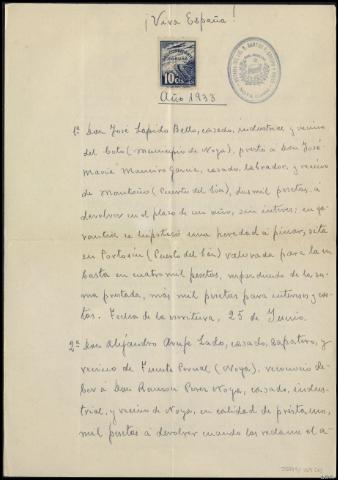 ¡Viva España!
10 cts
Año 1933
1ª Don José Lapido Bello, casado, industrial y vecino
del Coto (Municipio de Noya), prestó a Don José
María Maneiro García, casado, labrador, y vecino
de (Puerto del Son), dos mil pesetas, á
devolver en el plazo de un año, sin interés; en ga-
rantía se hipotecó una heredad á pinar, sita
en Portosín (Puerto del Son) valorada para la su
basta en cuatro mil pesetas, respondiendo de la su-
ma prestada, más mil pesetas para intereses y cos-
tas. Fecha de la escritura, 25 de Junio.
2ª Don Alejandro Lado, casado, zapatero, y
vecino de (Noya), reconoció de-
ber á Don Ramón Perez Noya, casado, indus-
trial, y vecino de Noya, en calidad de préstamo,
mil pesetas á devolver cuando las reclame el a-